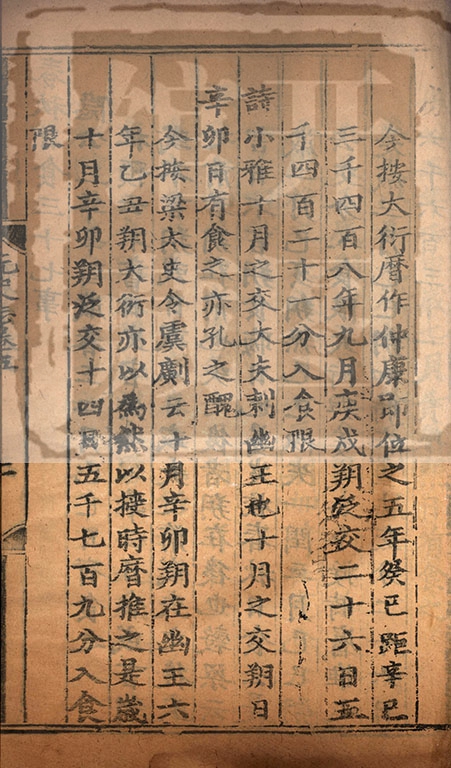 今按大衍曆作仲康即位之五年癸巳距辛巳
三千四百八年九月庚戌朔泛交二十六日五
千四百二十一分入食限
詩小雅十月之交大夫刺幽王也十月之交朔日
辛卯日有食之亦孔之醜
今按梁太史令虞𠠎云十月辛卯朔在幽王六
年乙丑朔大衍亦以為然以授時曆推之是歲
十月辛卯朔泛交十四日五千七百九分入食
限
元史志卷五